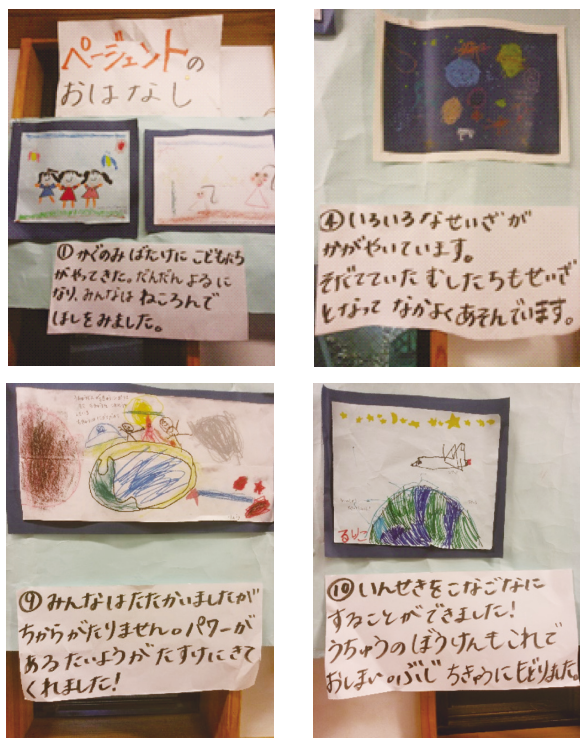 ページェントの
おはなし
①かぐのみばたけにこどもたち
がやってきた。だんだんよるに
なり、みんなはねころんで
ほしをみました。
④いろいろなせいざが
かがやいています。
そだてていたむしたちもせいざ
となってなかよくあそんでいます。
⑨みんなはたたかいましたが
ちからがたりません。パワーが
あるたいようがたすけにきて
くれました！
るりこ
⑩いんせきをこなごなに
することができました！
うちゅうのぼうけんもこれで
おしまい。ぶじちきゅうにもどりました。